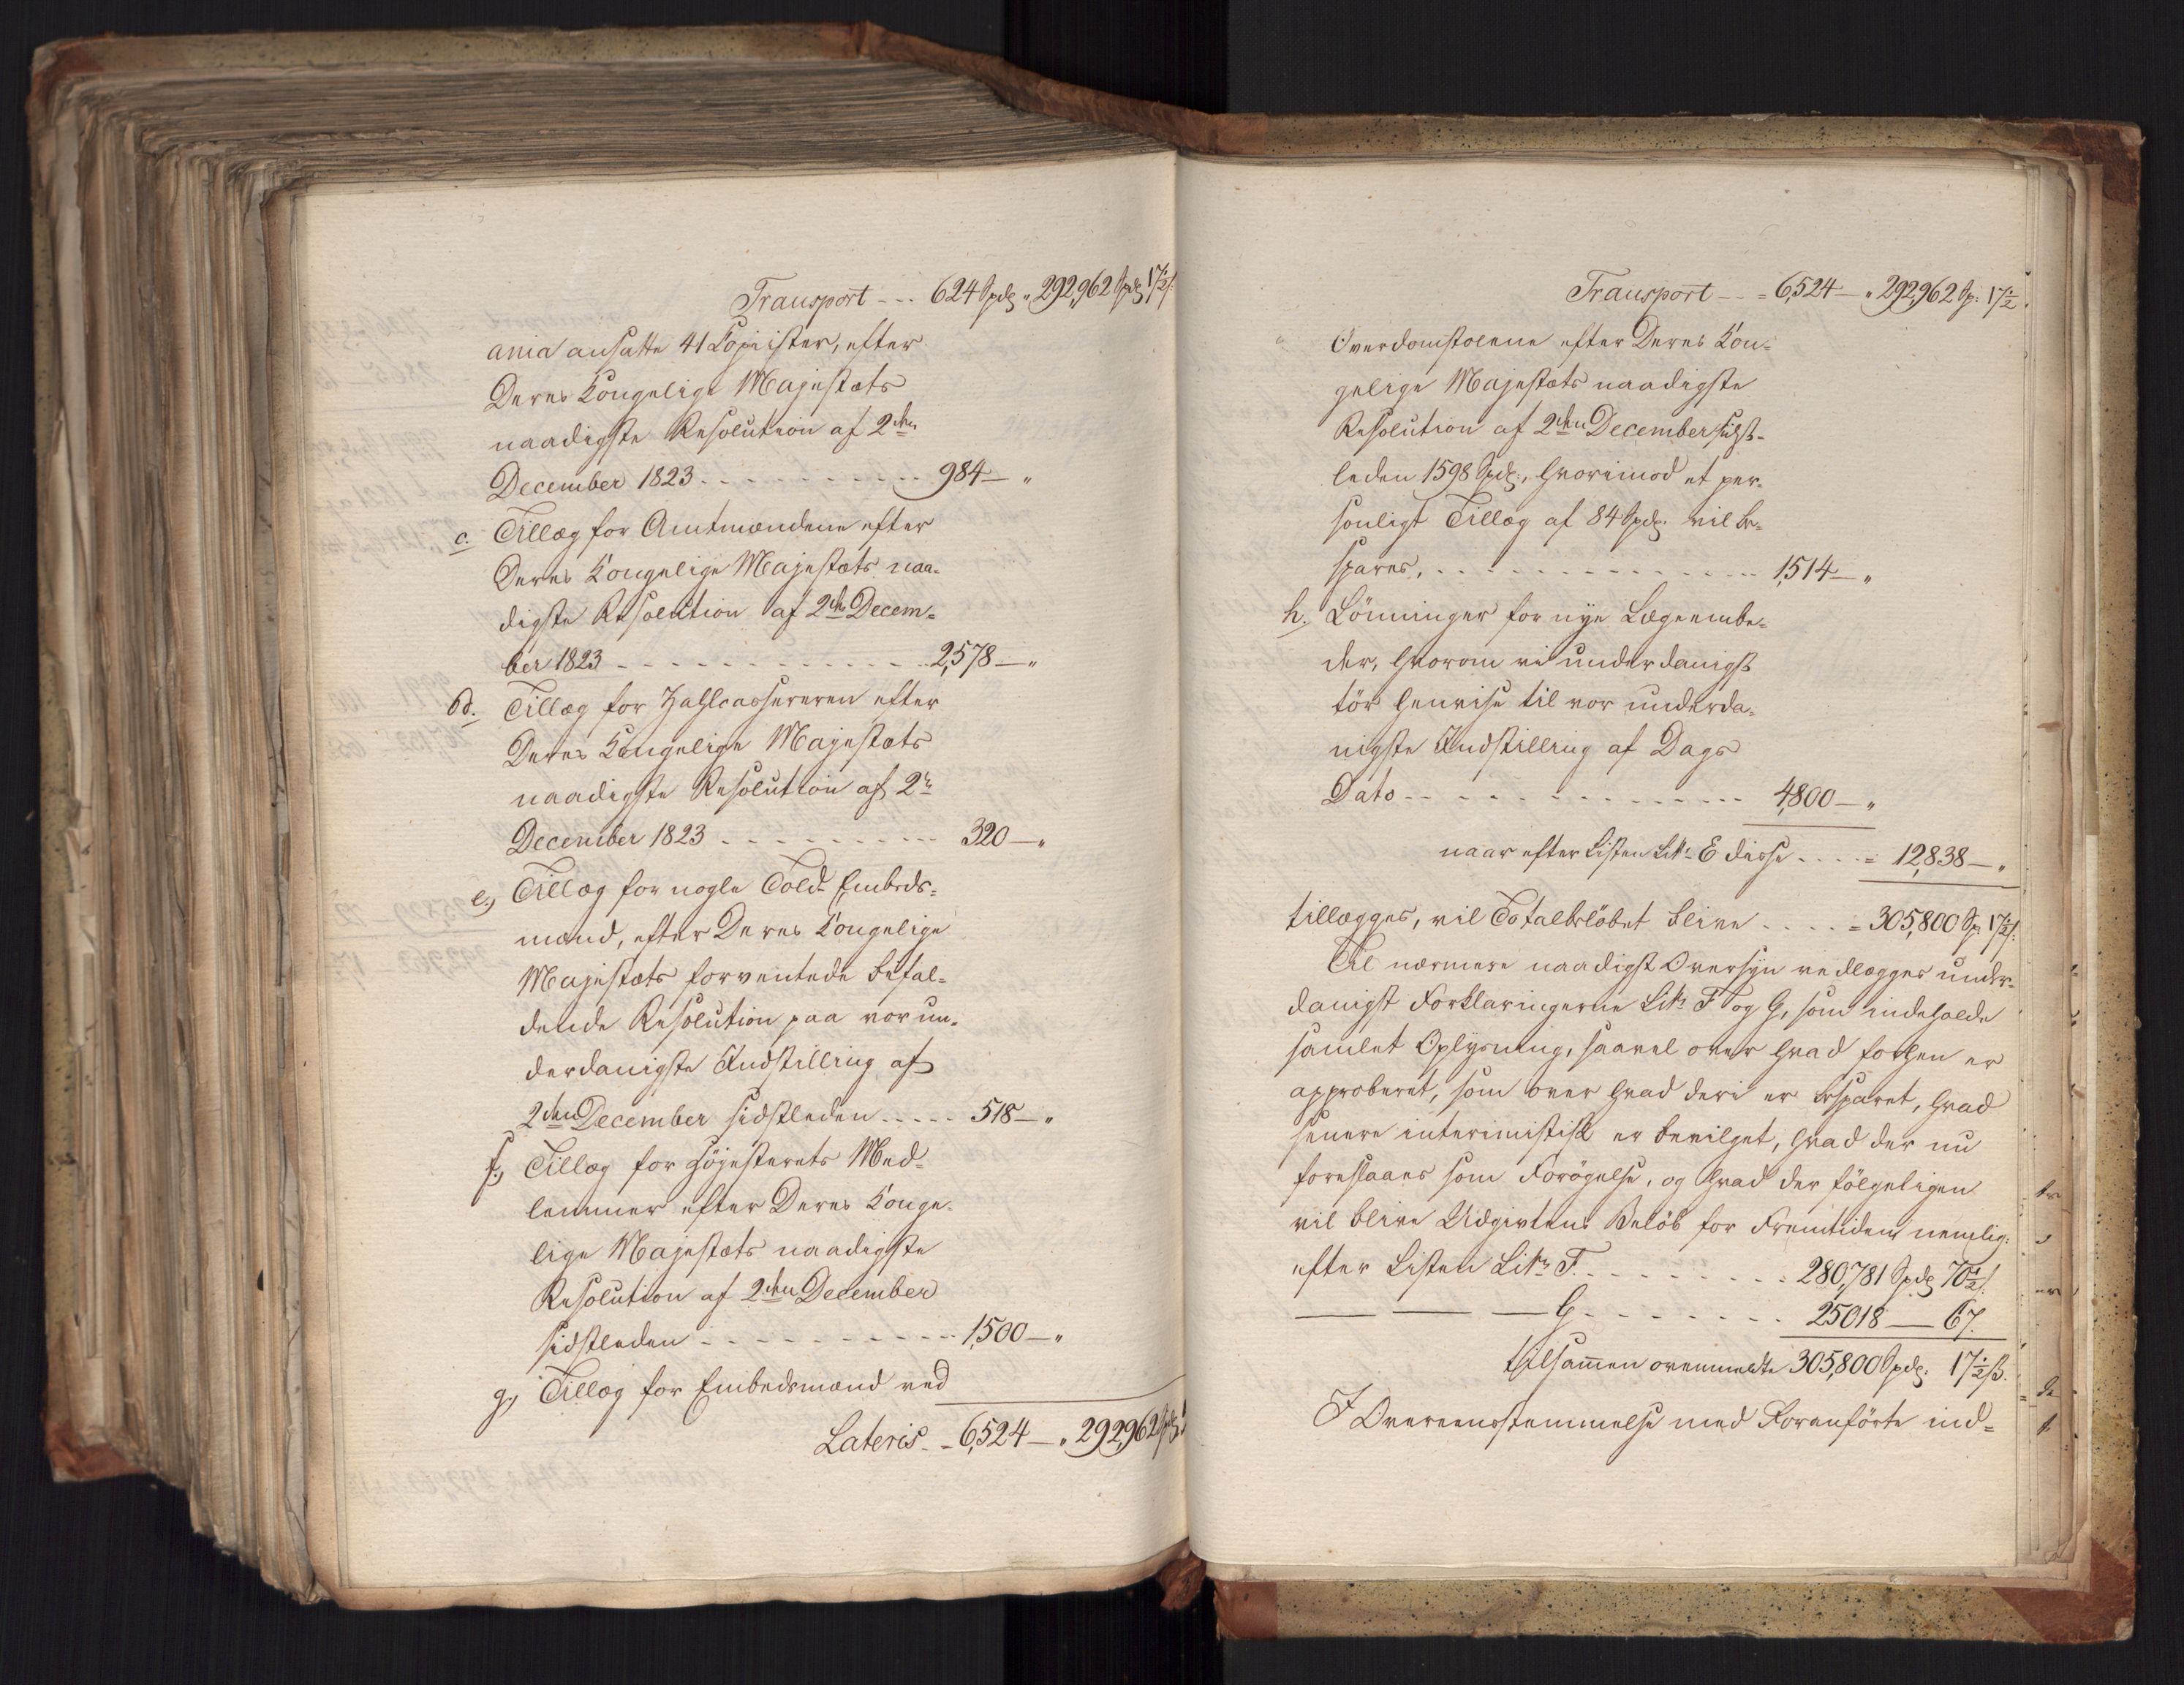 Transport - - - 624 Spd „ 292,962 Spd 17½ s.
ania ansatte 41 Copiister, efter
Deres Kongelige Majestæts
naadigste Resolution af 2den
December 1823 - - - - - - - - - - 984 — „
c. Tillæg for Amtmændene efter
Deres Kongelige Majestæts naa-
digste Resolution af 2den Decem-
ber 1823 - - - - - - - - - - - - 2,578 — „
d. Tillæg for Zahlcassereren efter
Deres Kongelige Majestæts
naadigste Resolution af 2n
December 1823 - - - - - - - - - 320 — „
e.) Tillæg for nogle Told-Embeds-
mænd, efter Deres Kongelige
Majestæts forventede befal-
dende Resolution paa vor un-
derdanigste Indstilling af
2den December sidstleden - - - - - 518 — „
f.) Tillæg for Højesterets Med-
lemmer efter Deres Konge-
lige Majestæts naadigste
Resolution af 2den December
sidstleden - - - - - - - - - - 1,500 — „
g.) Tillæg for Embedsmænd ved
Lateris - - 6,524 — „ 292,962 Spd
Transport - - = 6,524 — „ 292,962 Sp: 17½
Overdomstolene efter Deres Kon-
gelige Majestæts naadigste
Resolution af 2den December sidst-
leden 1598 Spd:, hvorimod et per-
sonligt Tillæg af 84 Spd. vil be-
spares, - - - - - - - - - - - - - 1,514 — „
h. Lönninger for nye Lægeembe-
der, hvorom vi underdanigst
tör henvise til vor underda-
nigste Indstilling af Dags
Dato - - - - - - - - - - - - - - 4,800 — „
naar efter Listen Litr. E disse - - - - = 12,838 — „
tillægges, vil Totalbelöbet blive - - - - = 305,800 Sp: 17½ s:
Til nærmere naadigst Oversyn vedlægges under-
danigst Forklaringerne Litr. F og G, som indeholde
samlet Oplysning, saavel over hvad forhen er
approberet, som over hvad deri er besparet, hvad
senere interimistisk er bevilget, hvad der nu
foreslaaes som Forögelse, og hvad der fölgeligen
vil blive Udgivtens Belöb for Fremtiden nemlig:
efter Listen Litr. F. - - - - - - - - 280,781 Spd 70½ s.
— — — G. - - - - - - - 25018 — 67.
tilsammen ovenmeldte 305,800 Spd. 17½ ß.
I Overeensstemmelse med Foranförte ind-